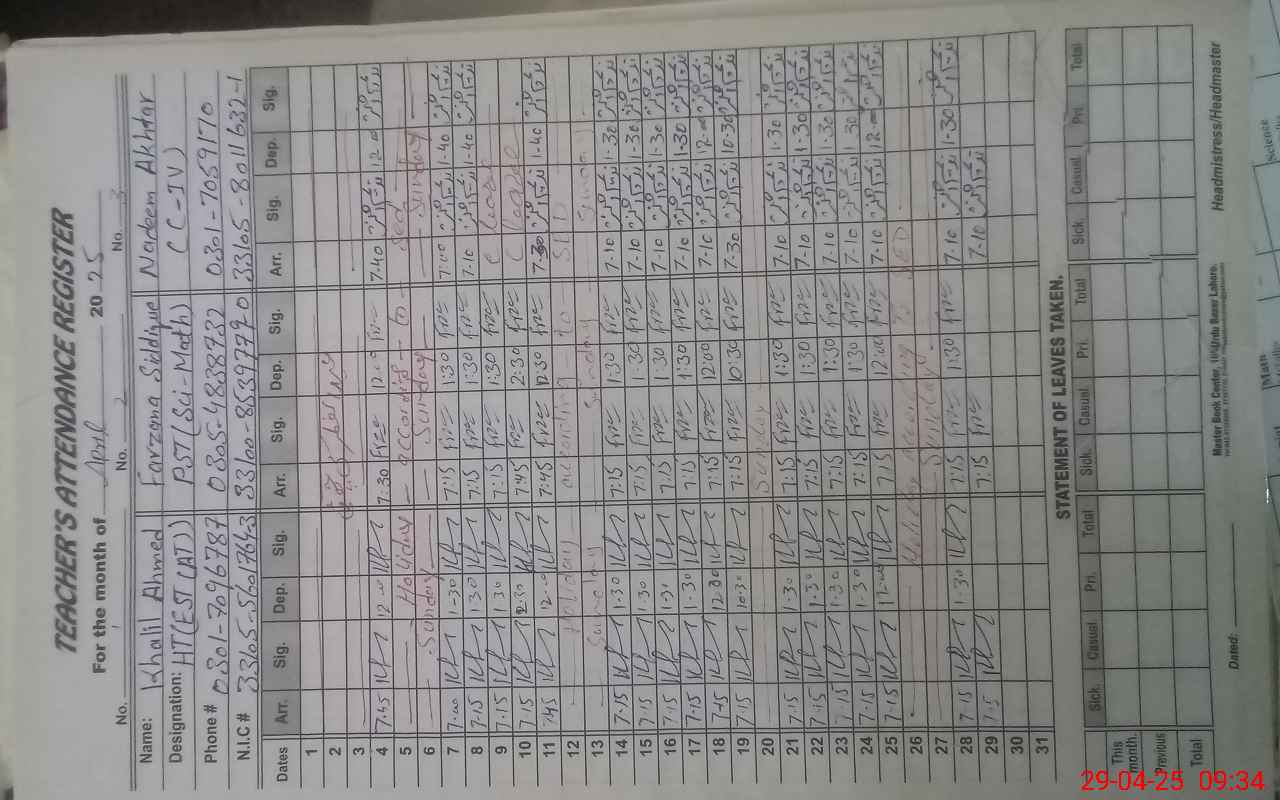 TEACHER'S ATTENDANCE REGISTER
For the month of April 2025
No. 1 No. 2 No. 3
Name: Khalil Ahmed Farzana Siddique Nadeem Akhtar
Designation: HT(EST(AT)) PST(Sci-Math) (C-IV)
Phone # 0301-7096787 0305-4838732 0301-7059170
N.I.C # 33100-8539779-0 33105-8011632-1
Dates Arr. Sig. Dep. Sig. Arr. Sig. Dep. Sig. Arr. Sig. Dep. Sig.
1
2
3
4 7.45 12.00 7:30 12.00 7.40 12.00
5 Holiday according to SED
6 Sunday Sunday Sunday
7 7.00 1-30 7:15 1:30 7.00 1.40
8 7.15 1.30 7:15 1:30 7.10 1.40
9 7.15 1.30 7:15 1:30 C Leave
10 7.15 2.30 7:45 2:30 C Leave
11 7.45 12.00 7:45 12.30 7.30 1.40
12 Holiday according to SED
13 Sunday Sunday Sunday
14 7.15 1.30 7:15 1:30 7.10 1.30
15 7.15 1.30 7:15 1:30 7.10 1.30
16 7.15 1.30 7:15 1:30 7.10 1.30
17 7.15 1.30 7:15 1:30 7.10 1.30
18 7.15 12.00 7:15 12:00 7.10 12.00
19 7.15 10.30 7:15 10:30 7.30 10.30
20 Sunday
21 7.15 1.30 7:15 1:30 7.10 1.30
22 7.15 1.30 7:15 1:30 7.10 1.30
23 7.15 1.30 7:15 1:30 7.10 1.30
24 7.15 1.30 7:15 1:30 7.10 1.30
25 7.15 12.00 7:15 12:00 7.10 12.00
26 Holiday according to SED
27 Sunday
28 7.15 1.30 7:15 1:30 7.10 1.30
29 7.15 7:15 7.10
30
31
STATEMENT OF LEAVES TAKEN.
Sick. Casual Pri. Total Sick. Casual Pri. Total Sick Casual Pri. Total
This month.
Previous
Total
Dated: Master Book Center, Urdu Bazar Lahore. Headmistress/Headmaster
Science
Math
29-04-25 09:34